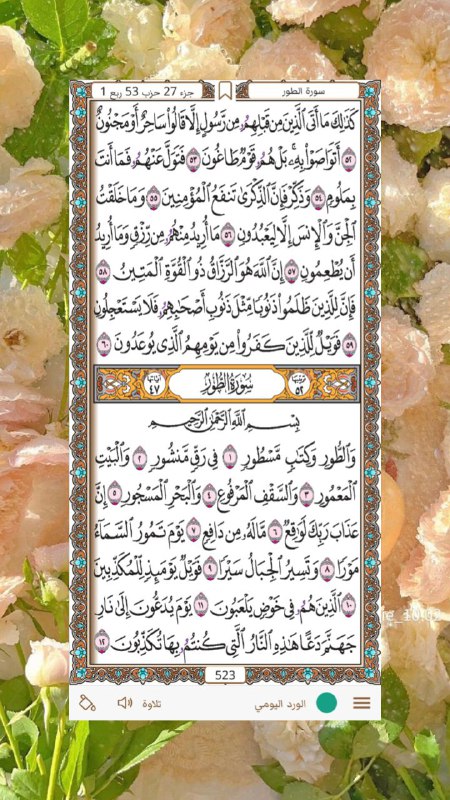 سورة الطور
جزء 27 حزب 53 ربع 1
كَذَٰلِكَ مَا أَتَى ٱلَّذِينَ مِن قَبْلِهِمُۥ مِن رَّسُولٍ إِلَّا قَالُوا۟ سَاحِرٌ أَوْ مَجْنُونٌ
٥٢ أَتَوَاصَوْا۟ بِهِۦ بَلْ هُمُۥ قَوْمٌ طَاغُونَ ٥٣ فَتَوَلَّ عَنْهُمُۥ فَمَا أَنتَ
بِمَلُومٍ ٥٤ وَذَكِّرْ فَإِنَّ ٱلذِّكْرَىٰ تَنفَعُ ٱلْمُؤْمِنِينَ ٥٥ وَمَا خَلَقْتُ
ٱلْجِنَّ وَٱلْإِنسَ إِلَّا لِيَعْبُدُونِ ٥٦ مَا أُرِيدُ مِنْهُمُۥ مِن رِّزْقٍ وَمَا أُرِيدُ
أَن يُطْعِمُونِ ٥٧ إِنَّ ٱللَّهَ هُوَ ٱلرَّزَّاقُ ذُو ٱلْقُوَّةِ ٱلْمَتِينُ ٥٨
فَإِنَّ لِلَّذِينَ ظَلَمُوا۟ ذَنُوبًا مِّثْلَ ذَنُوبِ أَصْحَٰبِهِمُۥ فَلَا يَسْتَعْجِلُونِ
٥٩ فَوَيْلٌ لِّلَّذِينَ كَفَرُوا۟ مِن يَوْمِهِمُ ٱلَّذِي يُوعَدُونَ ٦٠
ترتيبها ٥٢ سُورَةُ الطُّورِ آياتها ٤٧
بِسْمِ ٱللَّهِ ٱلرَّحْمَٰنِ ٱلرَّحِيمِ
وَٱلطُّورِ وَكِتَٰبٍ مَّسْطُورٍ ١ فِي رَقٍّ مَّنشُورٍ ٢ وَٱلْبَيْتِ
ٱلْمَعْمُورِ ٣ وَٱلسَّقْفِ ٱلْمَرْفُوعِ ٤ وَٱلْبَحْرِ ٱلْمَسْجُورِ ٥ إِنَّ
عَذَابَ رَبِّكَ لَوَاقِعٌ ٦ مَّا لَهُۥ مِن دَافِعٍ ٧ يَوْمَ تَمُورُ ٱلسَّمَآءُ
مَوْرًا ٨ وَتَسِيرُ ٱلْجِبَالُ سَيْرًا ٩ فَوَيْلٌ يَوْمَئِذٍ لِّلْمُكَذِّبِينَ
١٠ ٱلَّذِينَ هُمُۥ فِي خَوْضٍ يَلْعَبُونَ ١١ يَوْمَ يُدَعُّونَ إِلَىٰ نَارِ
جَهَنَّمَ دَعًّا هَٰذِهِ ٱلنَّارُ ٱلَّتِي كُنتُمُۥ بِهَا تُكَذِّبُونَ ١٢
523
الورد اليومي
تلاوة